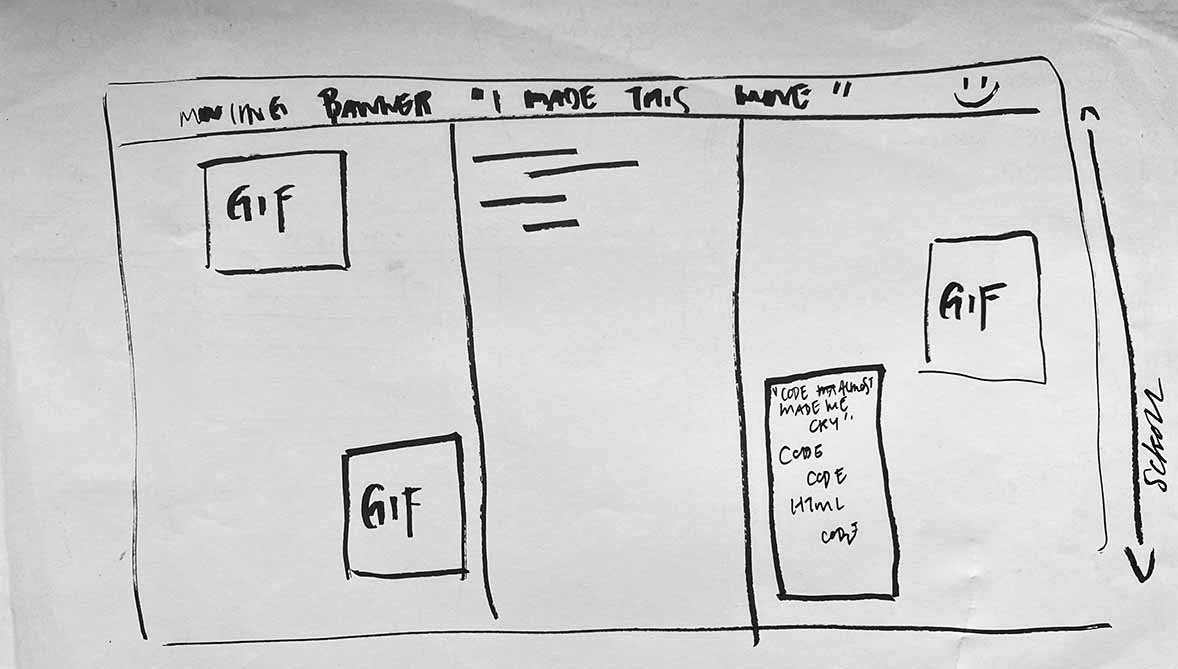 MOVING BANNER "I MADE THIS MOVE"
GIF
GIF
GIF
"CODE ALMOST
MADE ME
CRY"
CODE
CODE
HTML
CODE
SCROLL